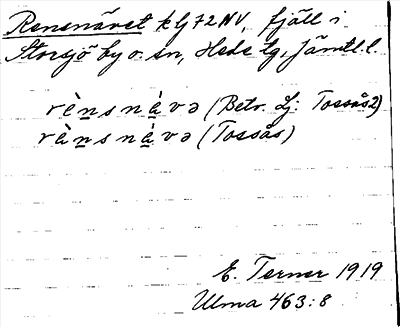 Rensnävet kbl 72 NV, fjäll i
Storsjö by o. sn, Hede tg, Jämtl. l.
rènsnàvə (Betr. Lj: Tossås 2)
rànsnàvə (Tossås)
E. Terner 1919
Ulma 463:8